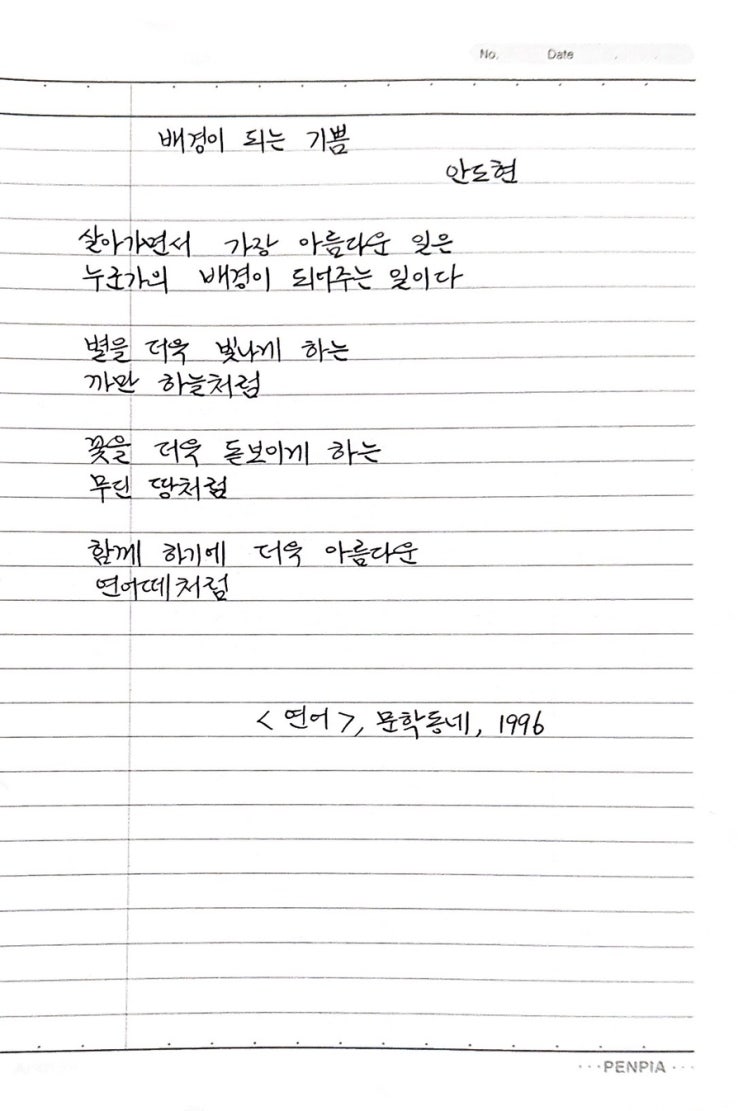 No. Date
배경이 되는 기쁨
안도현
살아가면서 가장 아름다운 일은
누군가의 배경이 되어주는 일이다
별을 더욱 빛나게 하는
까만 하늘처럼
꽃을 더욱 돋보이게 하는
무딘 땅처럼
함께 하기에 더욱 아름다운
연어떼처럼
<연어>, 문학동네, 1996
···PENPIA···